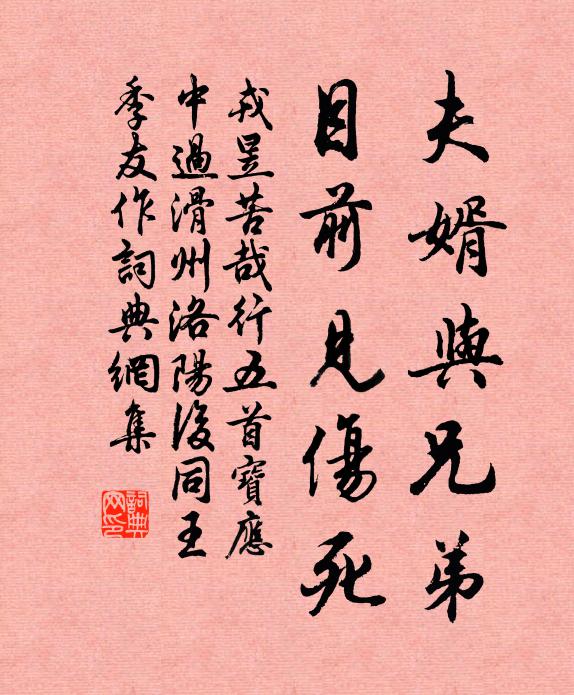 夫婿與兄弟
目前見傷死
戎昱苦哉行五首寶應
中過滑州洛陽後同王
季友作詞典網集
詞典网印